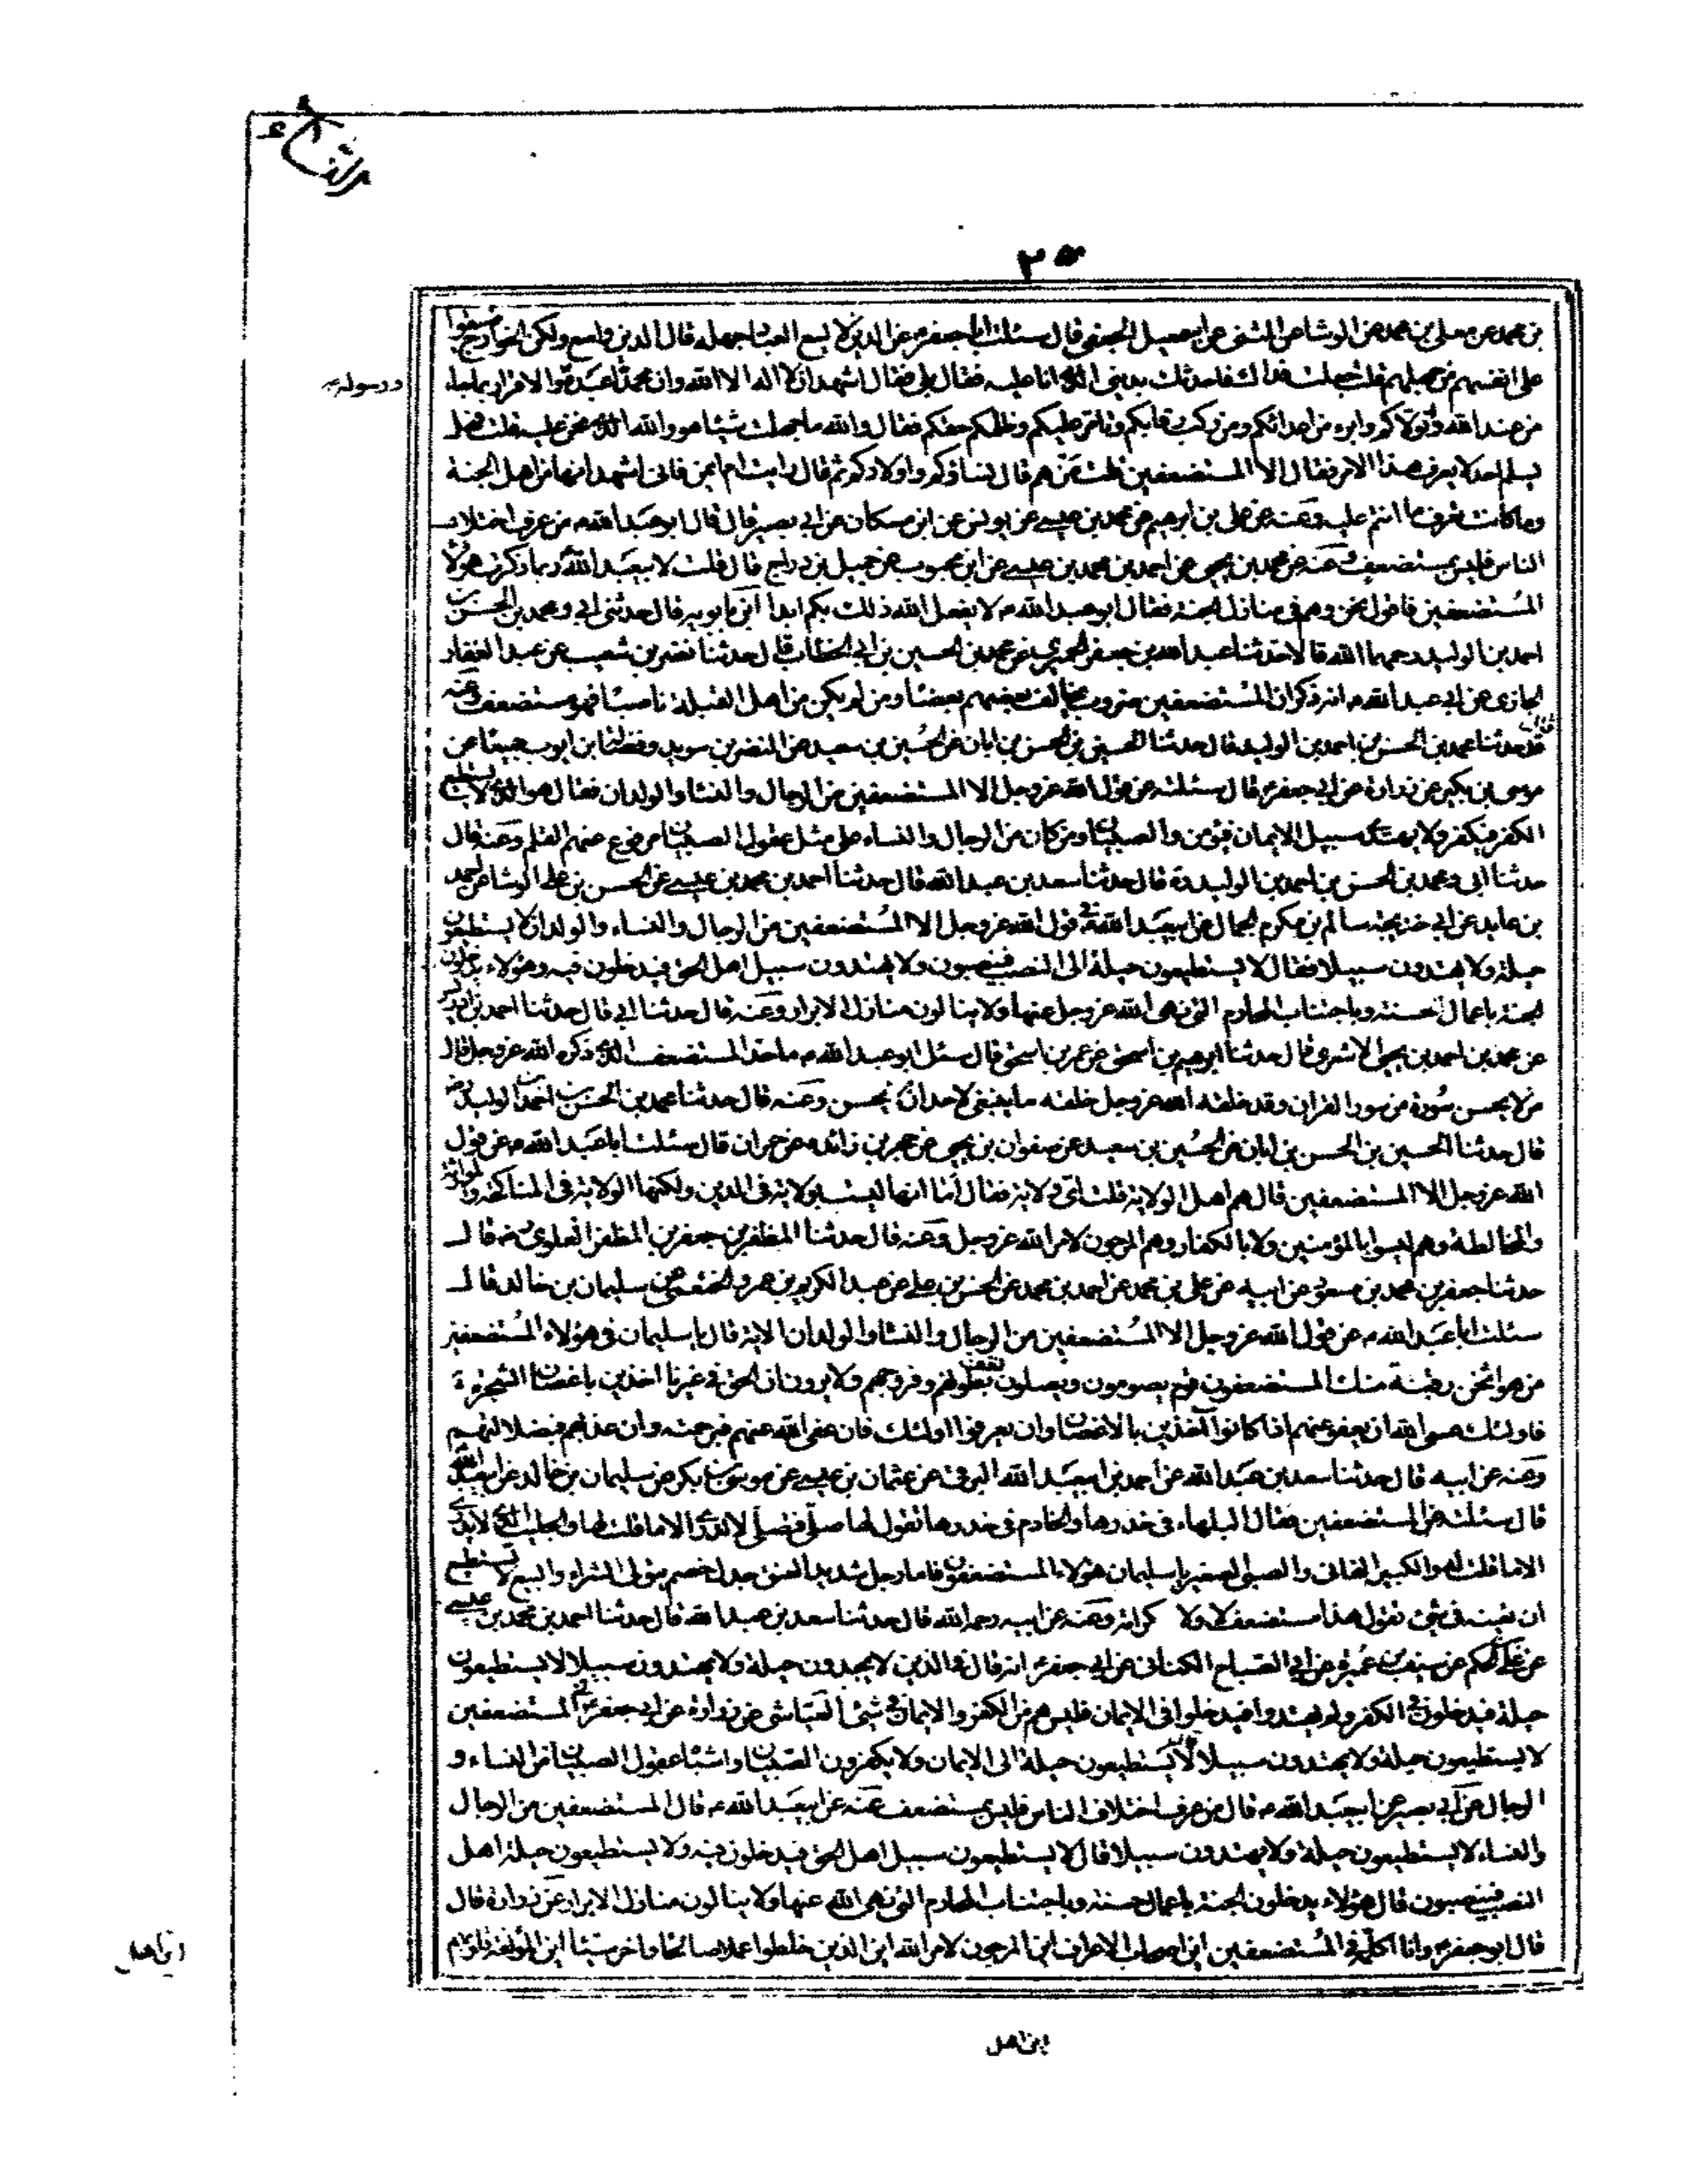 النساء
بن محمد عن معلى بن محمد عن الوشا عن المثنى عن اسمعيل الجعفي قال سئلت ابا جعفر ع عن الدين لا يسع العباد جهله قال الدين واسع ولكن الخوارج ضيقوا
على انفسهم من جهلهم قلت جعلت فداك فاحدثك بديني الذي انا عليه فقال بلى فقال اشهد ان لا اله الا الله وان محمدا عبده والاقرار بما جاء
ورسوله
من عند الله واتولاكم وابرء من اعدائكم ومن ركب رقابكم وتامر عليكم وظلمكم حقكم فقال والله ما جهلت شيئا هو والله الذي نحن عليه قلت فهل
يسلم احد لا يعرف هذا الامر فقال الا المستضعفين قلت من هم قال نساؤكم واولادكم ثم قال رايت ام ايمن فاني اشهد انها من اهل الجنة
وما كانت تعرف ما انتم عليه وعنه عن علي بن ابرهيم عن محمد بن عيسى عن يونس عن ابن مسكان عن ابي بصير قال قال ابو عبد الله ع من عرف اختلاف
الناس فليس بمستضعف وعنه عن محمد بن يحيى عن احمد بن محمد بن عيسى عن ابن محبوب عن جميل بن دراج قال قلت لابيعبد الله ربما ذكرت هؤلا
المستضعفين فاقول نحن وهم في منازل الجنة فقال ابو عبد الله ع لا يفعل الله ذلك بكم ابدا ابن بابويه قال حدثني ابي ومحمد بن الحسن بن
احمد بن الوليد رحمهما الله قالا حدثنا عبد الله بن جعفر الحميري عن محمد بن الحسين بن ابي الخطاب قال حدثنا نضر بن شعيب عن عبد الغفار
الجازي عن ابي عبد الله ع انه ذكر ان المستضعفين ضروب يخالف بعضهم بعضا ومن لم يكن من اهل القبلة ناصبا فهو مستضعف وعنه
قال حدثنا محمد بن الحسن بن احمد بن الوليد قال حدثنا الحسين بن الحسن بن ابان عن الحسين بن سعيد عن النضر بن سويد وفضالة بن ايوب جميعا عن
موسى بن بكير عن زرارة عن ابي جعفر ع قال سئلته عن قول الله عز وجل الا المستضعفين من الرجال والنساء والولدان فقال هو الذي لا يستطيع
الكفر فيكفر ولا يهتدي سبيل الايمان فيؤمن والصبيان ومن كان من الرجال والنساء على مثل عقول الصبيان مرفوع عنهم القلم وعنه قال
حدثنا ابي ومحمد بن الحسن بن احمد بن الوليد ره قال حدثنا سعد بن عبد الله قال حدثنا احمد بن محمد بن عيسى عن الحسن بن علي الوشا عن احمد
بن عايد عن ابي خديجة سالم بن مكرم الجمال عن ابيعبد الله في قول الله عز وجل الا المستضعفين من الرجال والنساء والولدان لا يستطيعون
حيلة ولا يهتدون سبيلا فقال لا يستطيعون حيلة الى النصب فينصبون ولا يهتدون سبيل اهل الحق فيدخلون فيه وهؤلاء يدخلون
الجنة باعمال حسنة وباجتناب المحارم التي نهى الله عز وجل عنها ولا ينالون منازل الابرار وعنه قال حدثنا ابي قال حدثنا احمد بن ادريس
عن محمد بن احمد بن يحيى الاشعري قال حدثنا ابرهيم بن اسحق عن عمر بن اسحق قال سئل ابو عبد الله ع ما حد المستضعف الذي ذكره الله عز وجل قال
من لا يحسن سورة من سور القران وقد خلقه الله عز وجل خلقه ما ينبغي لاحد ان لا يحسن وعنه قال حدثنا محمد بن الحسن بن احمد بن الوليد
قال حدثنا الحسين بن الحسن بن ابان عن الحسين بن سعيد عن صفوان بن يحيى عن حجر بن زائده عن حمران قال سئلت ابا عبد الله ع عن قول
الله عز وجل الا المستضعفين قال هم اهل الولاية قلت اي ولاية فقال اما انها ليست بولاية في الدين ولكنها الولاية في المناكحة والموارثة
والمخالطة وهم ليسوا بالمؤمنين ولا بالكفار وهم المرجون لامر الله عز وجل وعنه قال حدثنا المظفر بن جعفر بن المظفر العلوي قال
حدثنا جعفر بن محمد بن مسعود عن ابيه عن علي بن محمد عن احمد بن محمد عن الحسن بن علي عن عبد الكريم بن عمرو الخثعمي عن سليمان بن خالد قال
سئلت ابا عبد الله ع عن قول الله عز وجل الا المستضعفين من الرجال والنساء والولدان الاية قال يا سليمان في هؤلاء المستضعفين
من هو اثخن رقبة منك المستضعفون قوم يصومون ويصلون تعف بطونهم وفروجهم ولا يرون ان الحق في غيرنا اخذين باغصان الشجرة
فاولئك عسى الله ان يعفو عنهم اذا كانوا آخذين بالاغصان وان يعرفوا اولئك فان عفى الله عنهم فبرحمته وان عذبهم فبضلالتهم
وعنه عن ابيه قال حدثنا سعد بن عبد الله عن احمد بن ابيعبد الله البرقي عن عثمان بن عيسى عن موسى بن بكر عن سليمان بن خالد عن ابيعبد الله
قال سئلته عن المستضعفين فقال البلهاء في خدرها والخادم في خدرها تقول لها صلي فتصلي لا تدري الا ما قلت لها والجليب الذي لا يدري
الا ما قلت له والكبير الفاني والصبي الصغير يا سليمان هؤلاء المستضعفون فاما رجل شديد العنق جدل خصم يتولى الشراء والبيع لا تستطيع
ان تغبنه في شيء تقول هذا مستضعف لا ولا كرامة وعنه عن ابيه رحمه الله قال حدثنا سعد بن عبد الله قال حدثنا احمد بن محمد بن عيسى
عن علي بن الحكم عن سيف بن عميرة عن ابي الصباح الكناني عن ابي جعفر ع انه قال في الذين لا يجدون حيلة ولا يهتدون سبيلا لا يستطيعون
حيلة فيدخلون في الكفر ولم يهتدوا فيدخلوا في الايمان فليس هم من الكفر والايمان في شيء العياشي عن زرارة عن ابي جعفر ع في المستضعفين
لا يستطيعون حيلة ولا يهتدون سبيلا لا يستطيعون حيلة الى الايمان ولا يكفرون الصبيان واشباه عقول الصبيان من النساء و
الرجال عن ابي بصير عن ابيعبد الله ع قال من عرف اختلاف الناس فليس بمستضعف عنه عن ابيعبد الله ع قال المستضعفين من الرجال
والنساء لا يستطيعون حيلة ولا يهتدون سبيلا قال لا يستطيعون سبيل اهل الحق فيدخلون فيه ولا يستطيعون حيلة اهل
النصب فينصبون قال هؤلاء يدخلون الجنة باعمال حسنة وباجتناب المحارم التي نهى الله عنها ولا ينالون منازل الابرار عن زرارة قال
قال ابو جعفر ع وانا اكلمه في المستضعفين اين اصحاب الاعراف اين المرجون لامر الله اين الذين خلطوا عملا صالحا واخر سيئا اين المؤلفة قلوبهم
اين اهل
اين اهل